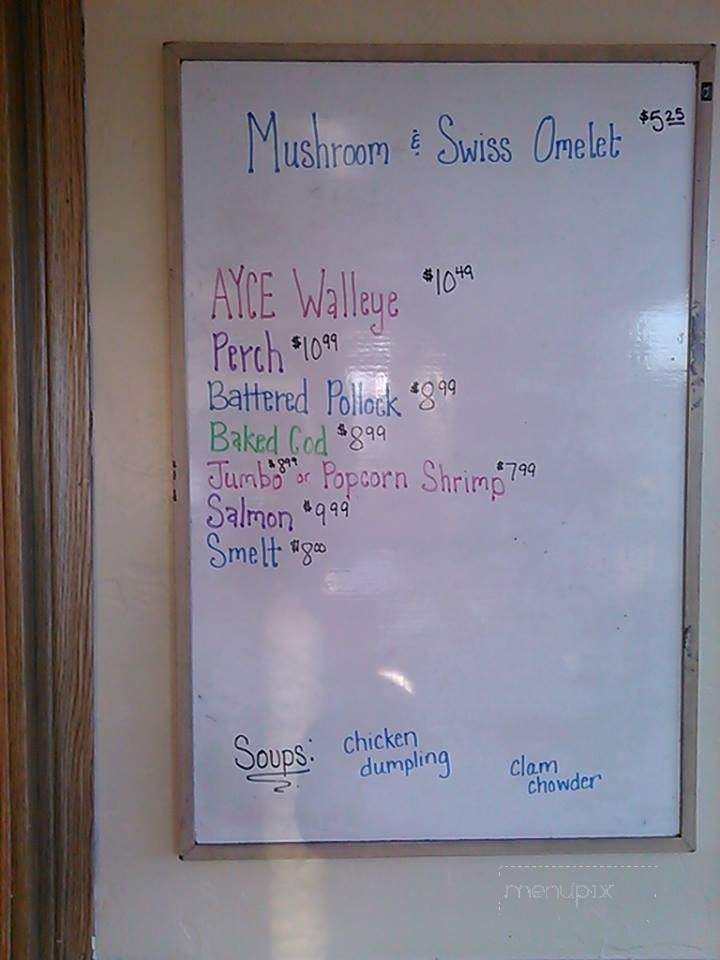 Mushroom & Swiss Omelet $5.25
AYCE Walleye $10.49
Perch $10.99
Battered Pollock $8.99
Baked Cod $8.99
Jumbo $8.99 or Popcorn Shrimp $7.99
Salmon $9.99
Smelt $8.00
Soups: chicken dumpling clam chowder
menupix